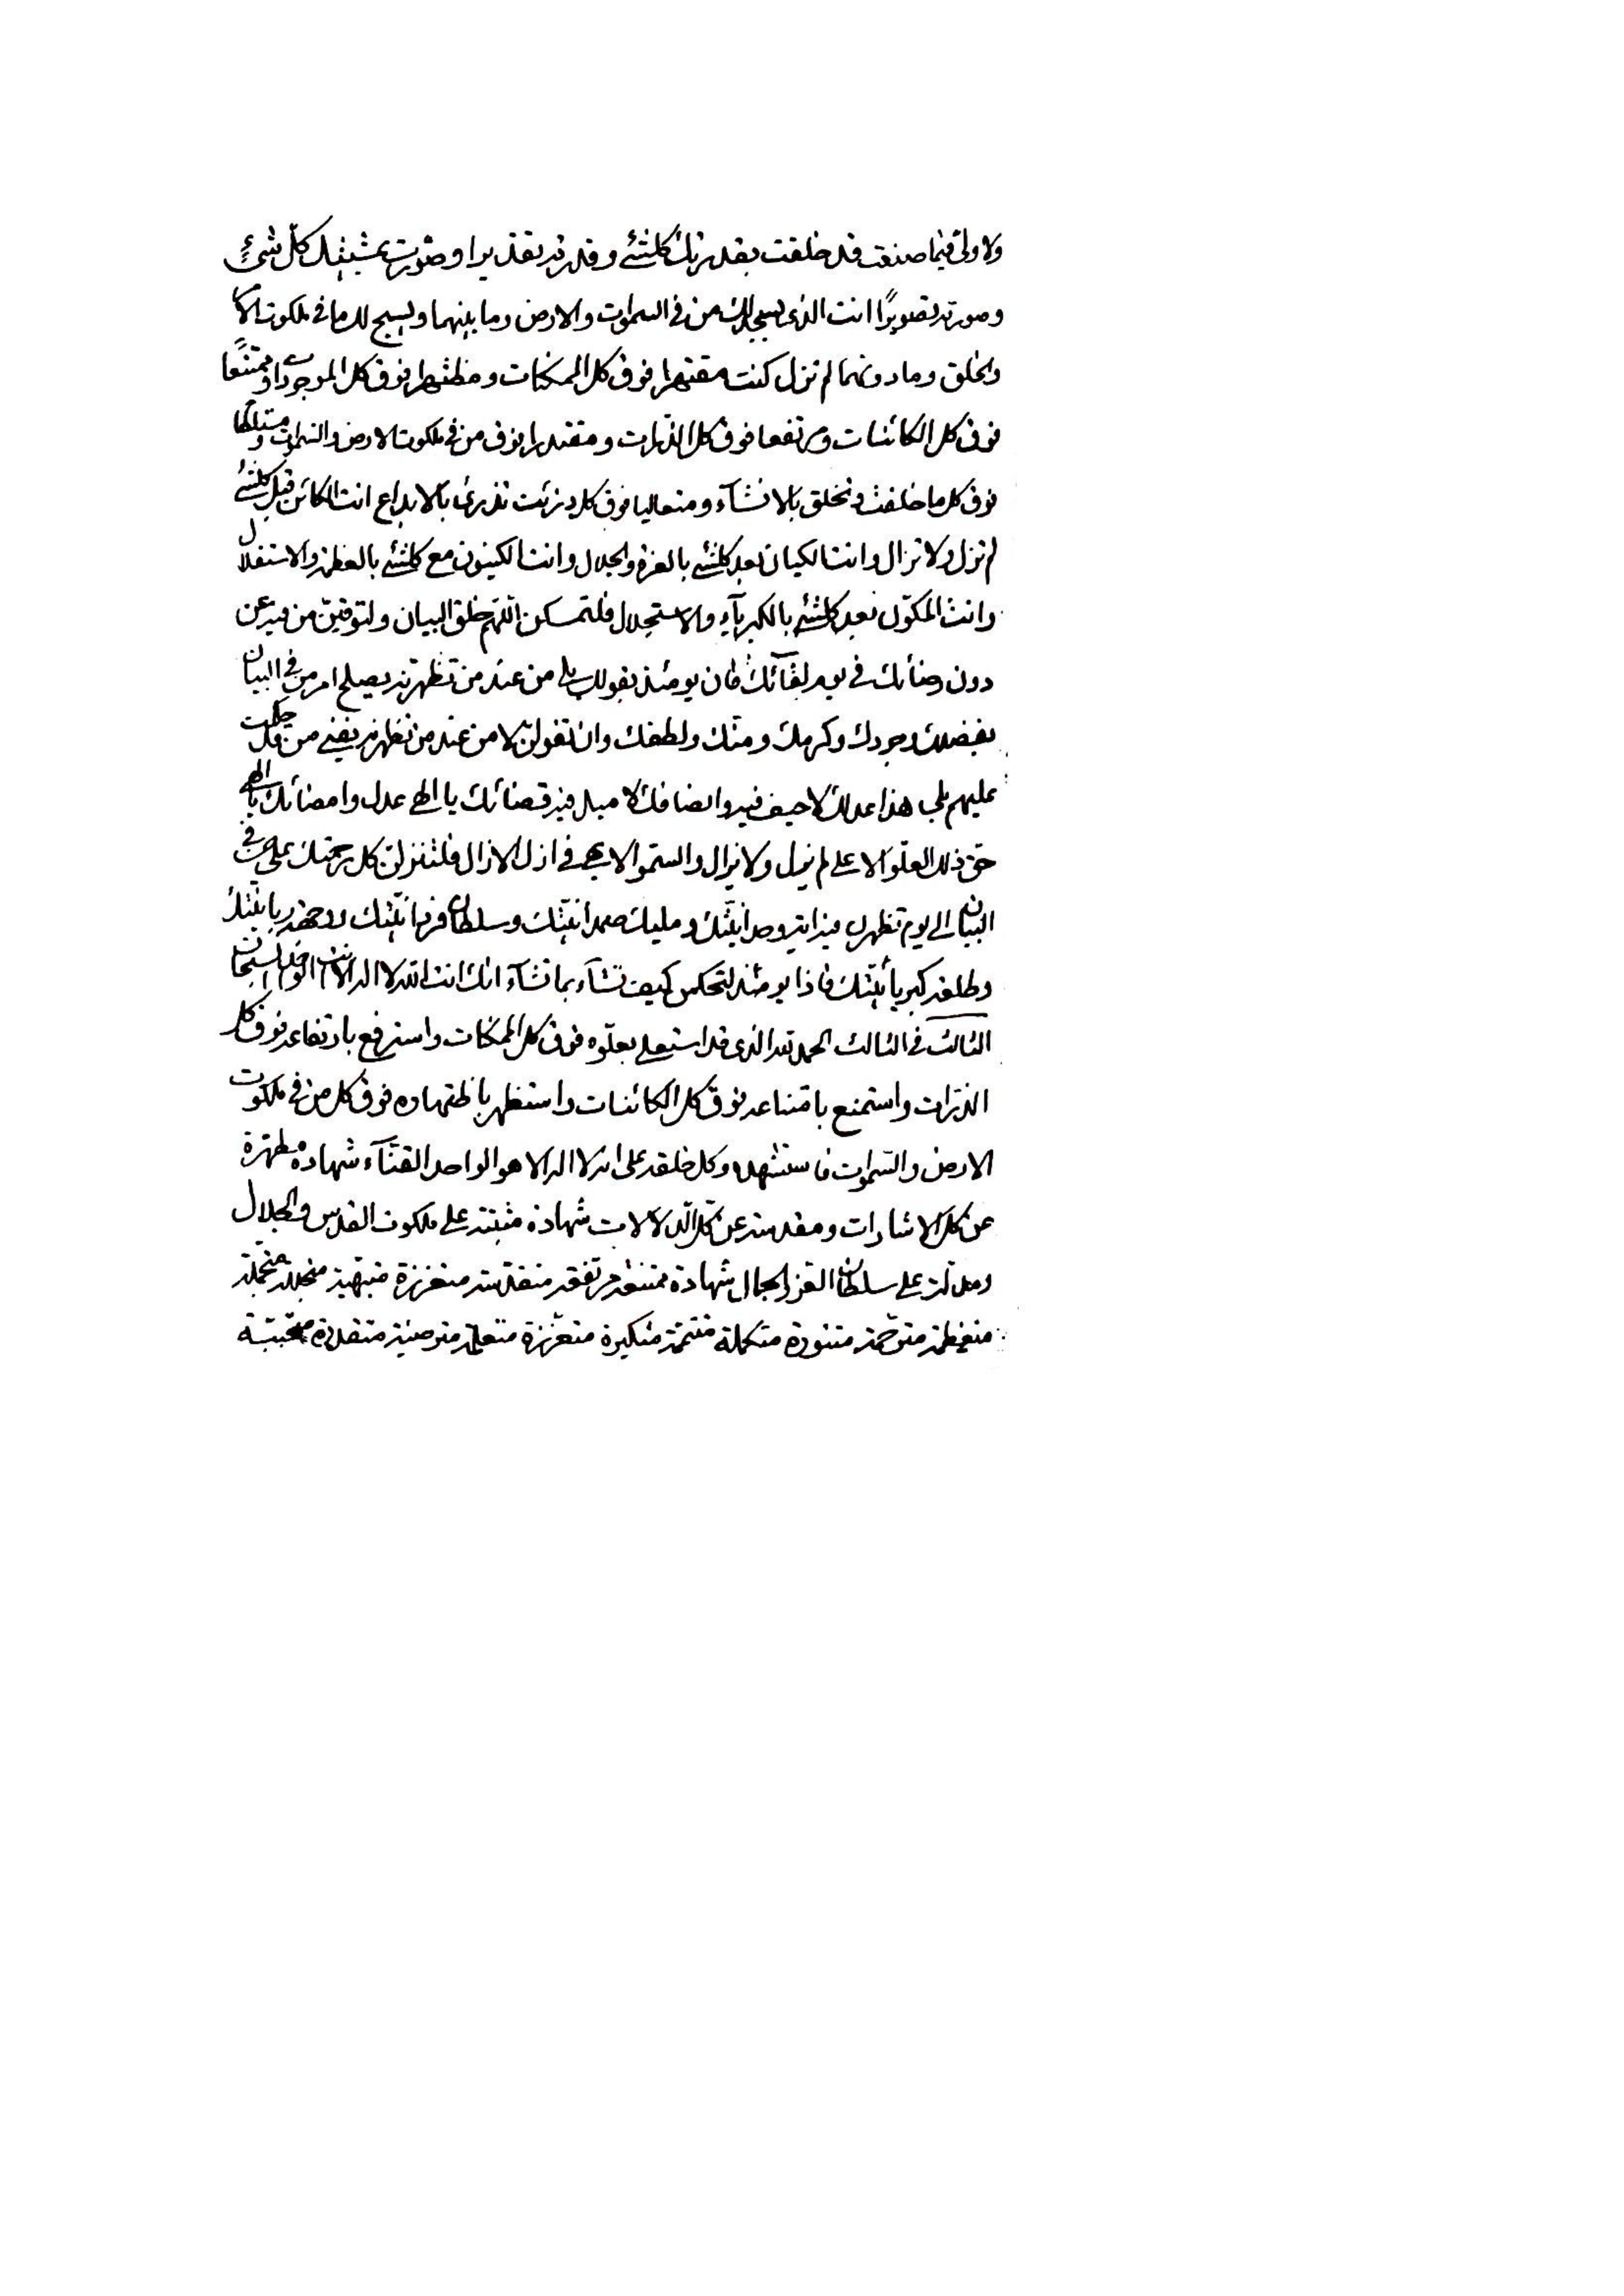 ولا ولي فيما صنعت قد خلقت بقدرتك كلشئ وقدرته تقديرا وصورت بمشيتك كل شئ
وصورته تصويرًا انت الذي يسجد لك من في السموات والارض وما بينهما ويسبح لك ما في ملكوت الامر
والخلق وما دونهما لم تزل كنت مقتهرا فوق كل الممكنات ومظتهرا فوق كل الموجودات وممتنعًا
فوق كل الكائنات ومرتفعا فوق كل الذرات ومقتدرا فوق من في ملكوت الارض والسموات
فوق كل ما خلقت وتخلق بالانشآء ومتعاليا فوق كل ما ذرئت تذرئ بالابداع انت الكائن قبل كلشئ
لم تزل ولا تزال وانت الكيان بعد كلشئ بالعزة والجلال وانت الكينون مع كلشئ بالعظمة والاستقلال
وانت المكون بعد كلشئ بالكبريآء والاستجلال فلتمسكن اللهم خلق البيان ولتوقين من فيه عن
دون رضائك في يوم لقآئك فان يومئذ بقولك بلى من عند من تظهرنه يصلح امر من في البيان
بفضلك وجودك وكرمك ومنك ولطفك وان تقولن لا من عند من تظهرنه يفنى من قد حكمت
عليهم بلى هذا عدلك لا حيف فيه وانصافك لا ميل فيه قضائك يا الهي عدل وامضائك يا الهي
حق ذلك العلو الاعلى لم يزل ولا يزال والسمو الابهى في ازل الازال فلتنزلن كل رحمتك على من في
البيان الى يوم تظهرن فيه اية وحدانيتك ومليك صمدانيتك وسلطان فردانيتك
وطلعة كبريائيتك فاذا يومئذ لتحكمن كيف تشآء بما تشآء انك انت الله لا اله الا انت الواحد السبحان
الثالث في الثالث الحمد لله الذي قد استعلى بعلوه فوق كل الممكنات واسترفع بارتفاعه فوق كل
الذرات واستمنع بامتناعه فوق كل الكائنات واستظهر باظتهاره فوق كل من في ملكوت
الارض والسموات فاستشهده وكل خلقه على انه لا اله الا هو الواحد القتآء شهادة مطهرة
عن كل الاشارات ومقدسة عن كل الدلالات شهادة مثبتة على ملكوت القدس والجلال
ومدلة على سلطان العز والجمال شهادة ممتنعة مرتفعة متقدسة متعززة متبهية متجللة متجملة
متعظمة مترحمة متنورة متكملة متكبرة متعززة مترضية